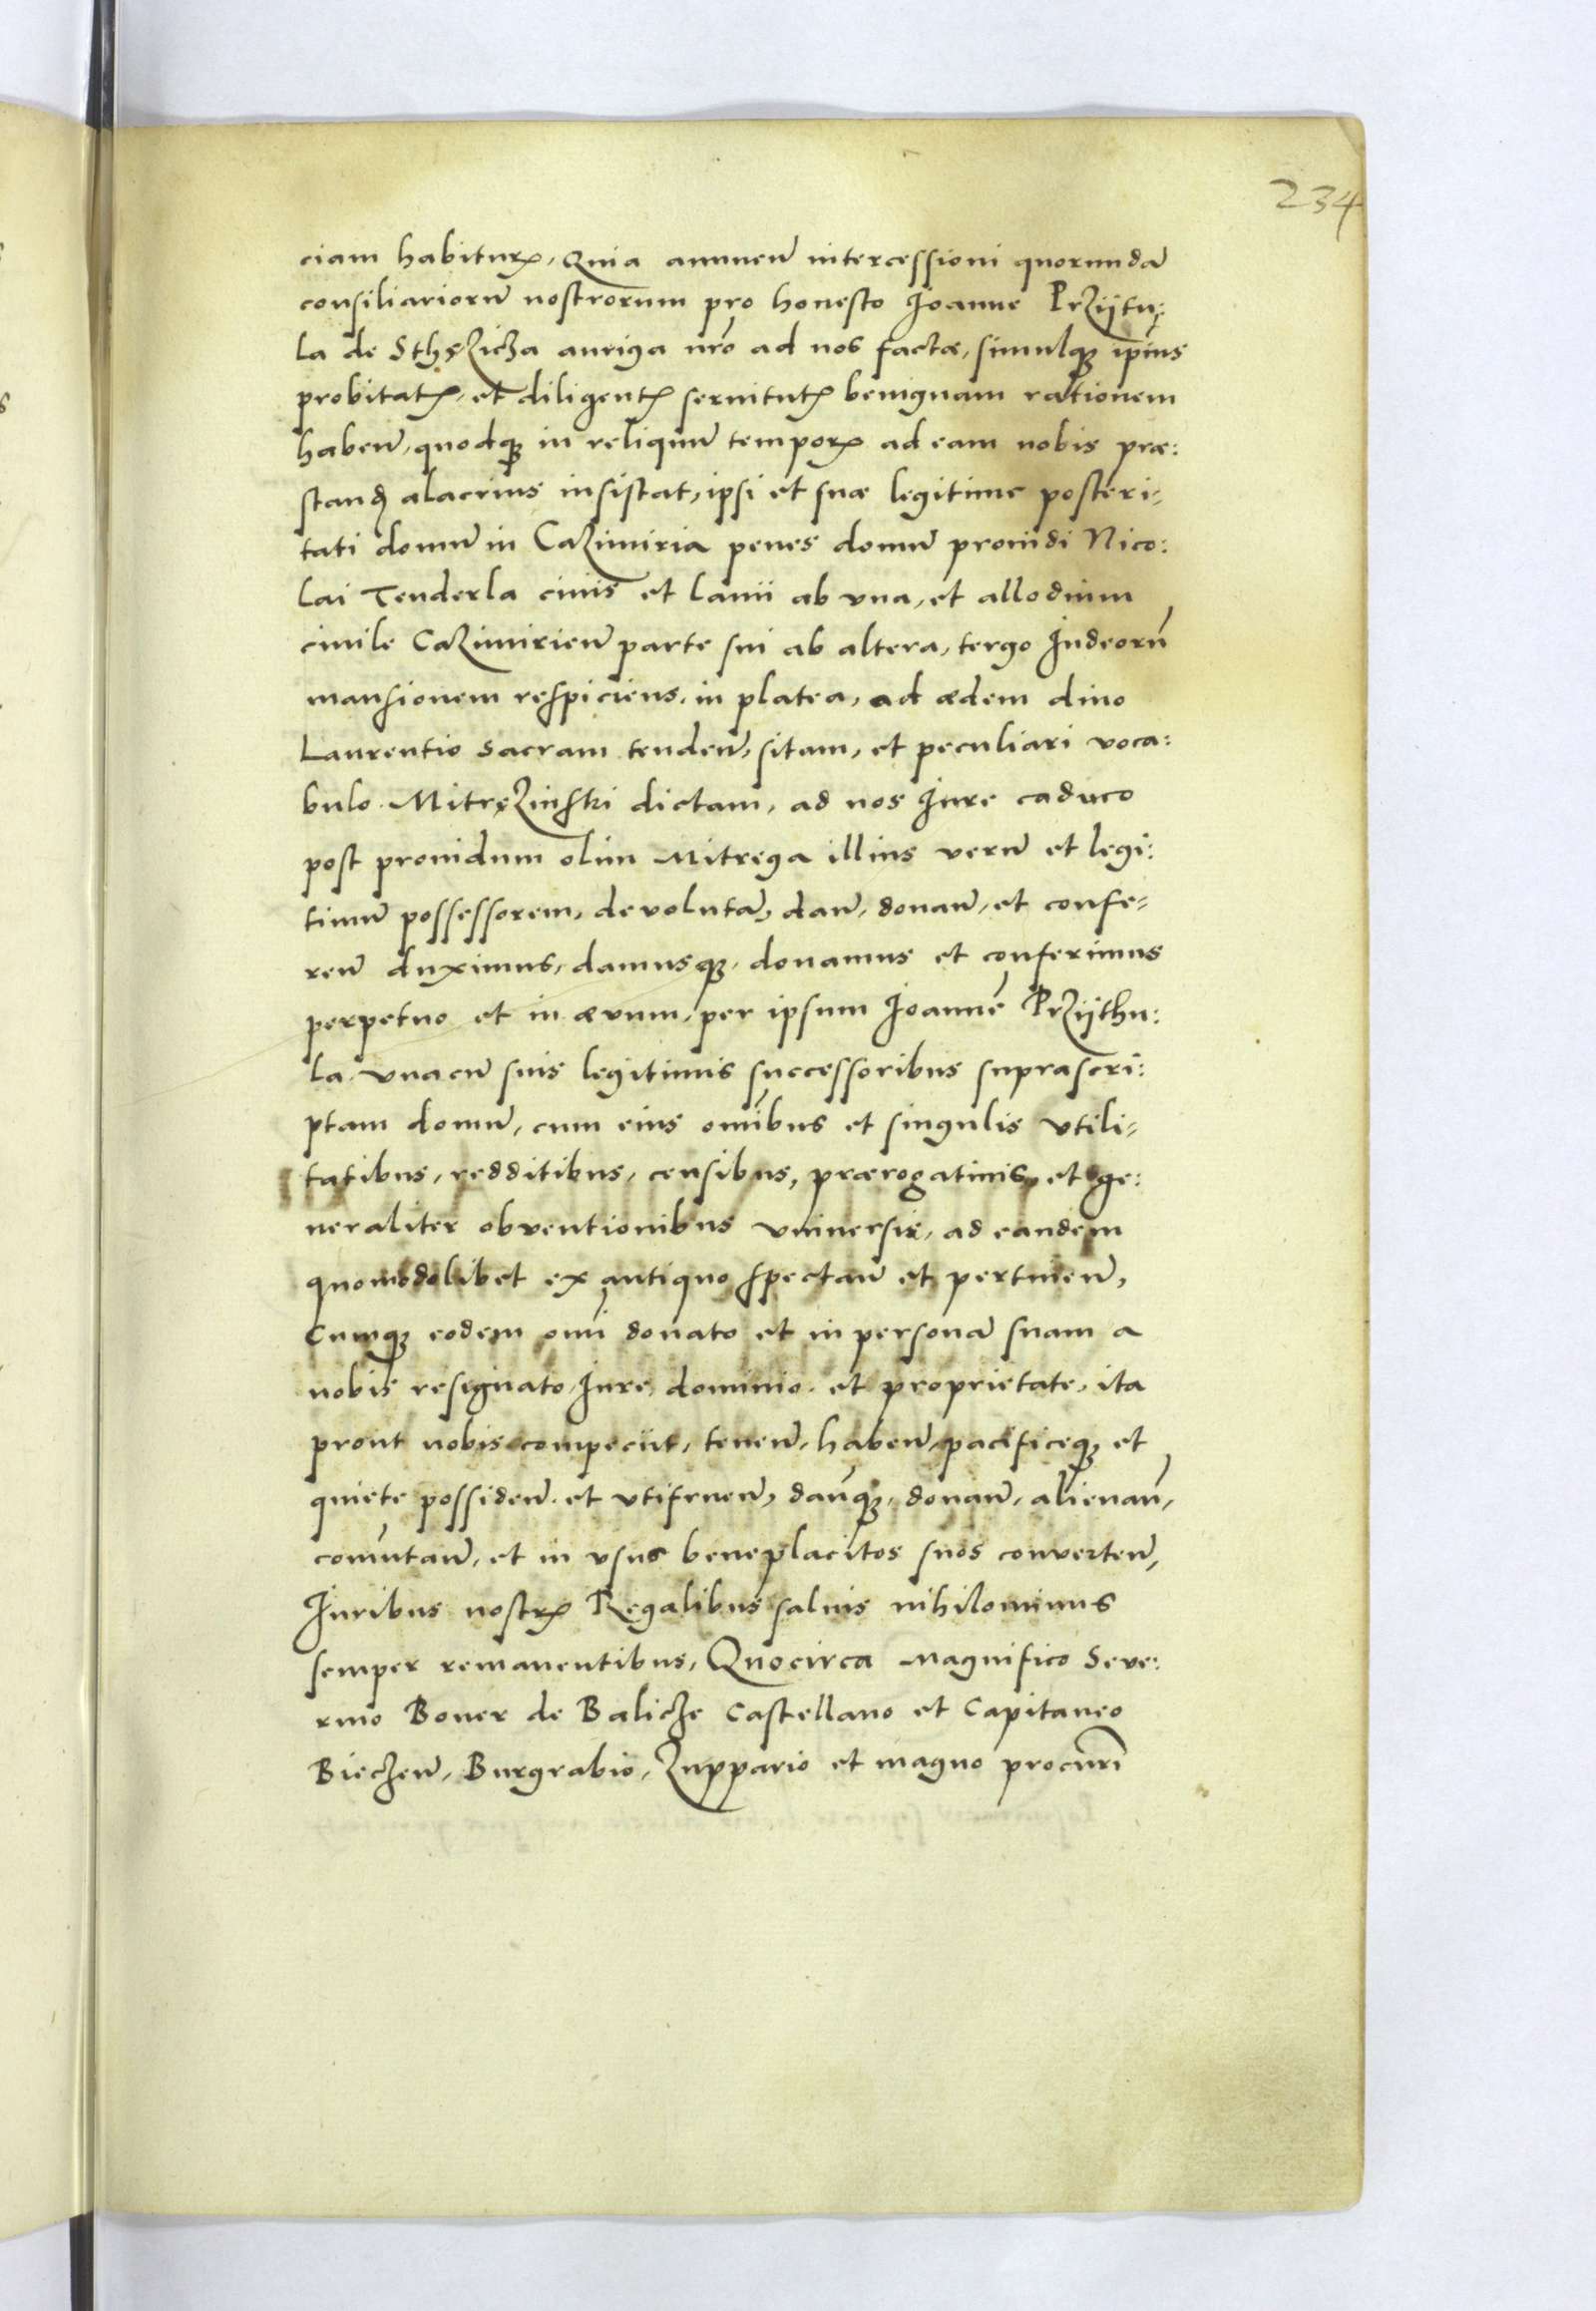 234
ciam habitur, Quia annuen intercessioni quorundã
consiliariorũ nostrorum pro honesto Ioanne Prziitu:
la de Sthęzicza auriga nr̃o ad nos factæ, simulqꝫ ip̃ius
probitat, et diligent seruitut benignam rationem
haben̄, quodqꝫ in reliquũ tempor ad eam nobis præ:
stand alacrius insistat, ipsi et suæ legitime posteri-
tati domũ in Cazimiria penes domũ prouidi Nico:
lai Tenderla ciuis et lanii ab vna, et allodium
ciuile Cazimirien̄ parte sui ab altera, tergo Iudeorũ
mansionem respiciens, in platea, ad ædem diuo
Laurentio sacram tenden̄, sitam, et peculiari voca:
bulo Mitręzinski dictam, ad nos Iure caduco
post prouidum olim Mitrega illius verũ et legi:
timũ possessorem, deuolutã, dan̄, donan̄, et confe-
ren̄ duximus, damusqꝫ, donamus et conferimus
perpetuo et in æuum, per ipsum Ioannẽ Prziithu:
la vnacũ suis legitimis successoribus suprascri:
ptam domũ, cum eius om̃ibus et singulis vtili-
tatibus, redditibus, censibus, prærogatiuis, et ge:
neraliter obventionibus vniuersis, ad eandem
quomodolibet ex antiquo spectan̄ et pertinen̄,
Cumqꝫ eodem om̃i donato et in personã suam a
nobis resignato Iure, dominio et proprietate, ita
prout nobis compeciit, tenen̄, haben̄, pacificeqꝫ et
quiete possiden̄ et vtifruen̄, dan̄qꝫ, donan̄, alienan̄,
com̃utan̄, et in vsus beneplacitos suos converten̄,
Iuribus nostr Regalibus saluis nihilominus
semper remanentibus, Quocirca Magnifico Seve:
rino Boner de Balicze Castellano et Capitaneo
Bieczen̄, Burgrabio, Zuppario et magno procur̃i